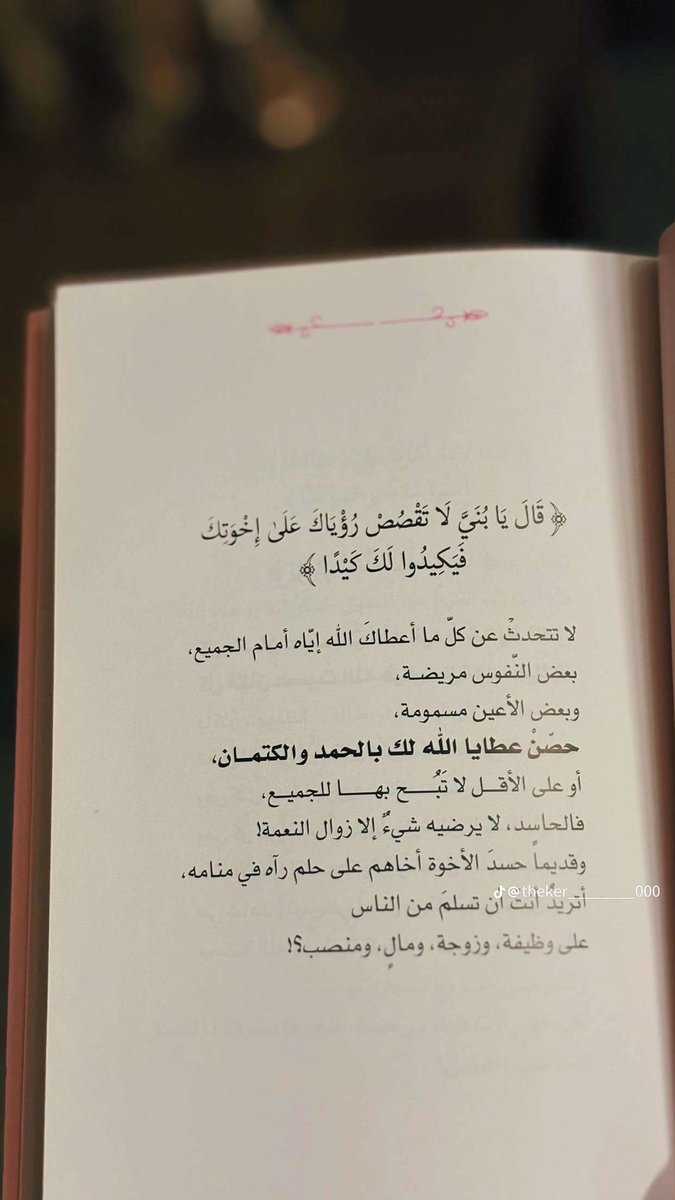 ﴿ قَالَ يَا بُنَيَّ لَا تَقْصُصْ رُؤْيَاكَ عَلَىٰ إِخْوَتِكَ
فَيَكِيدُوا لَكَ كَيْدًا ﴾
لا تتحدثْ عن كلّ ما أعطاكَ الله إيّاه أمام الجميع،
بعض النّفوس مريضة،
وبعض الأعين مسمومة،
حصّنْ عطايا الله لك بالحمد والكتمـان،
أو على الأقــل لا تَبُــــح بهــــا للجميــع،
فالحاسد، لا يرضيه شيءٌ إلا زوال النعمة!
وقديماً حسدَ الأخوة أخاهم على حلم رآه في منامه،
@theker_________000
أتريدُ أنتَ أن تسلمَ من الناس
على وظيفة، وزوجة، ومالٍ، ومنصب؟!